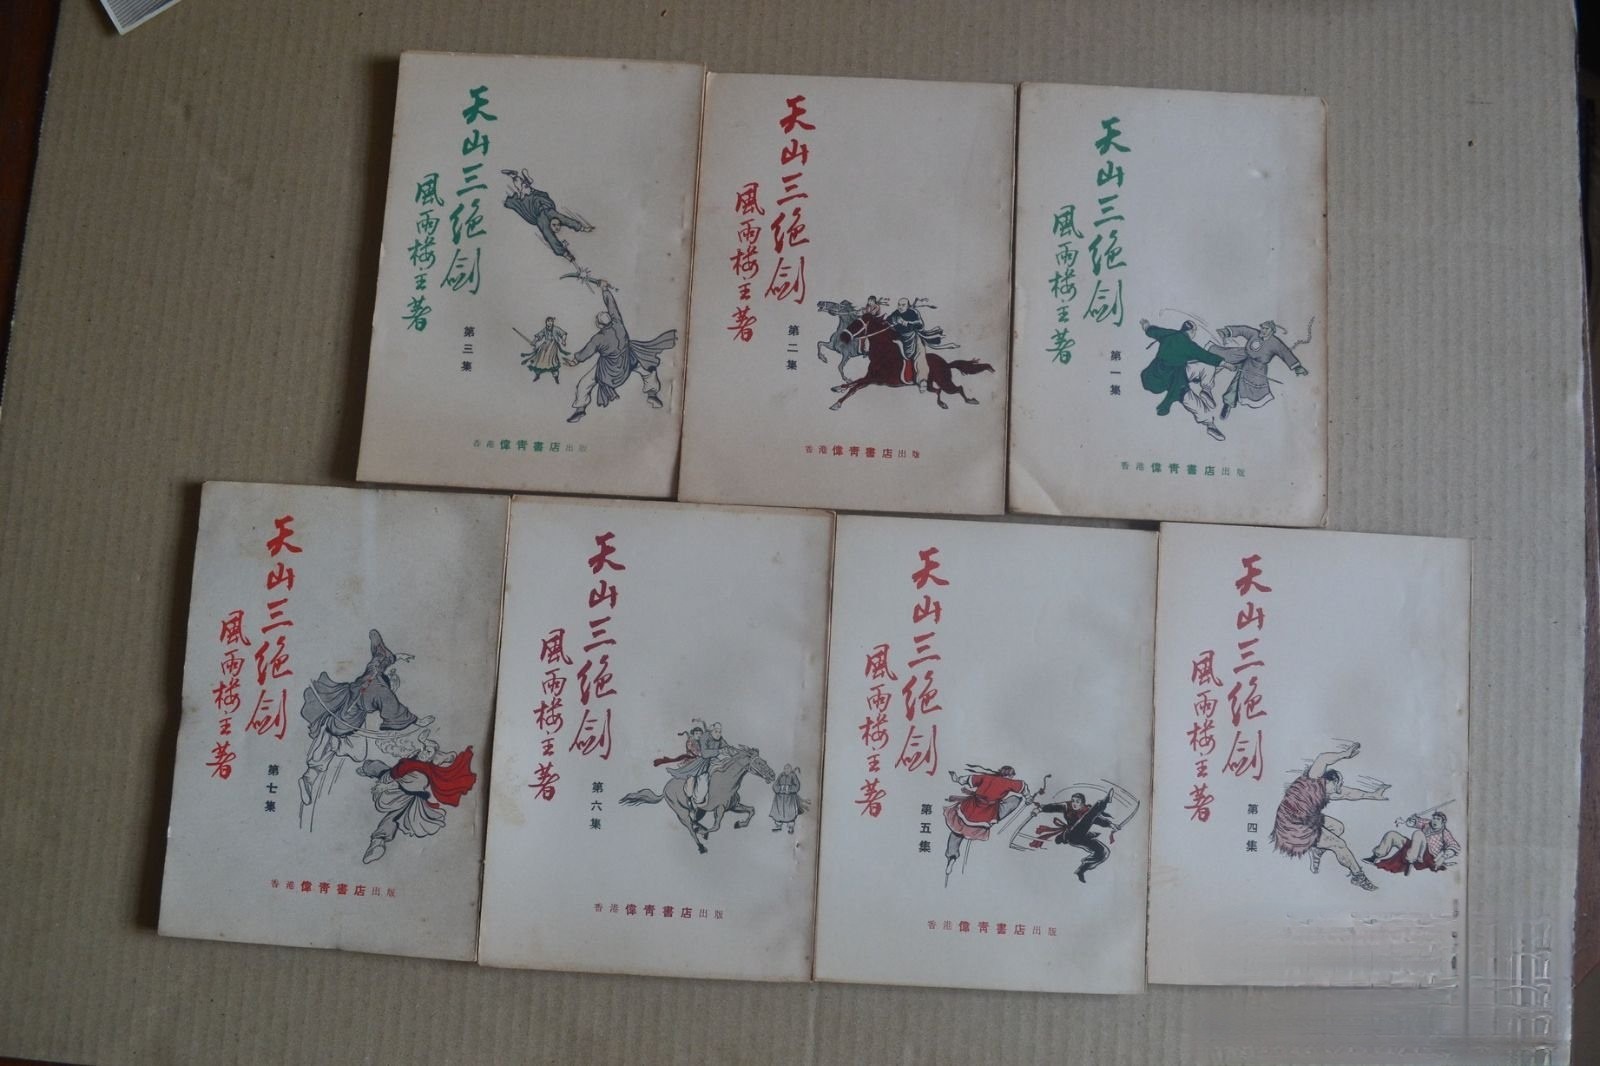 天山三絕劍
風雨樓主著
第三集
香港偉青書店出版
天山三絕劍
風雨樓主著
第二集
香港偉青書店出版
天山三絕劍
風雨樓主著
第一集
香港偉青書店出版
天山三絕劍
風雨樓主著
第七集
香港偉青書店出版
天山三絕劍
風雨樓主著
第六集
香港偉青書店出版
天山三絕劍
風雨樓主著
第五集
香港偉青書店出版
天山三絕劍
風雨樓主著
第四集